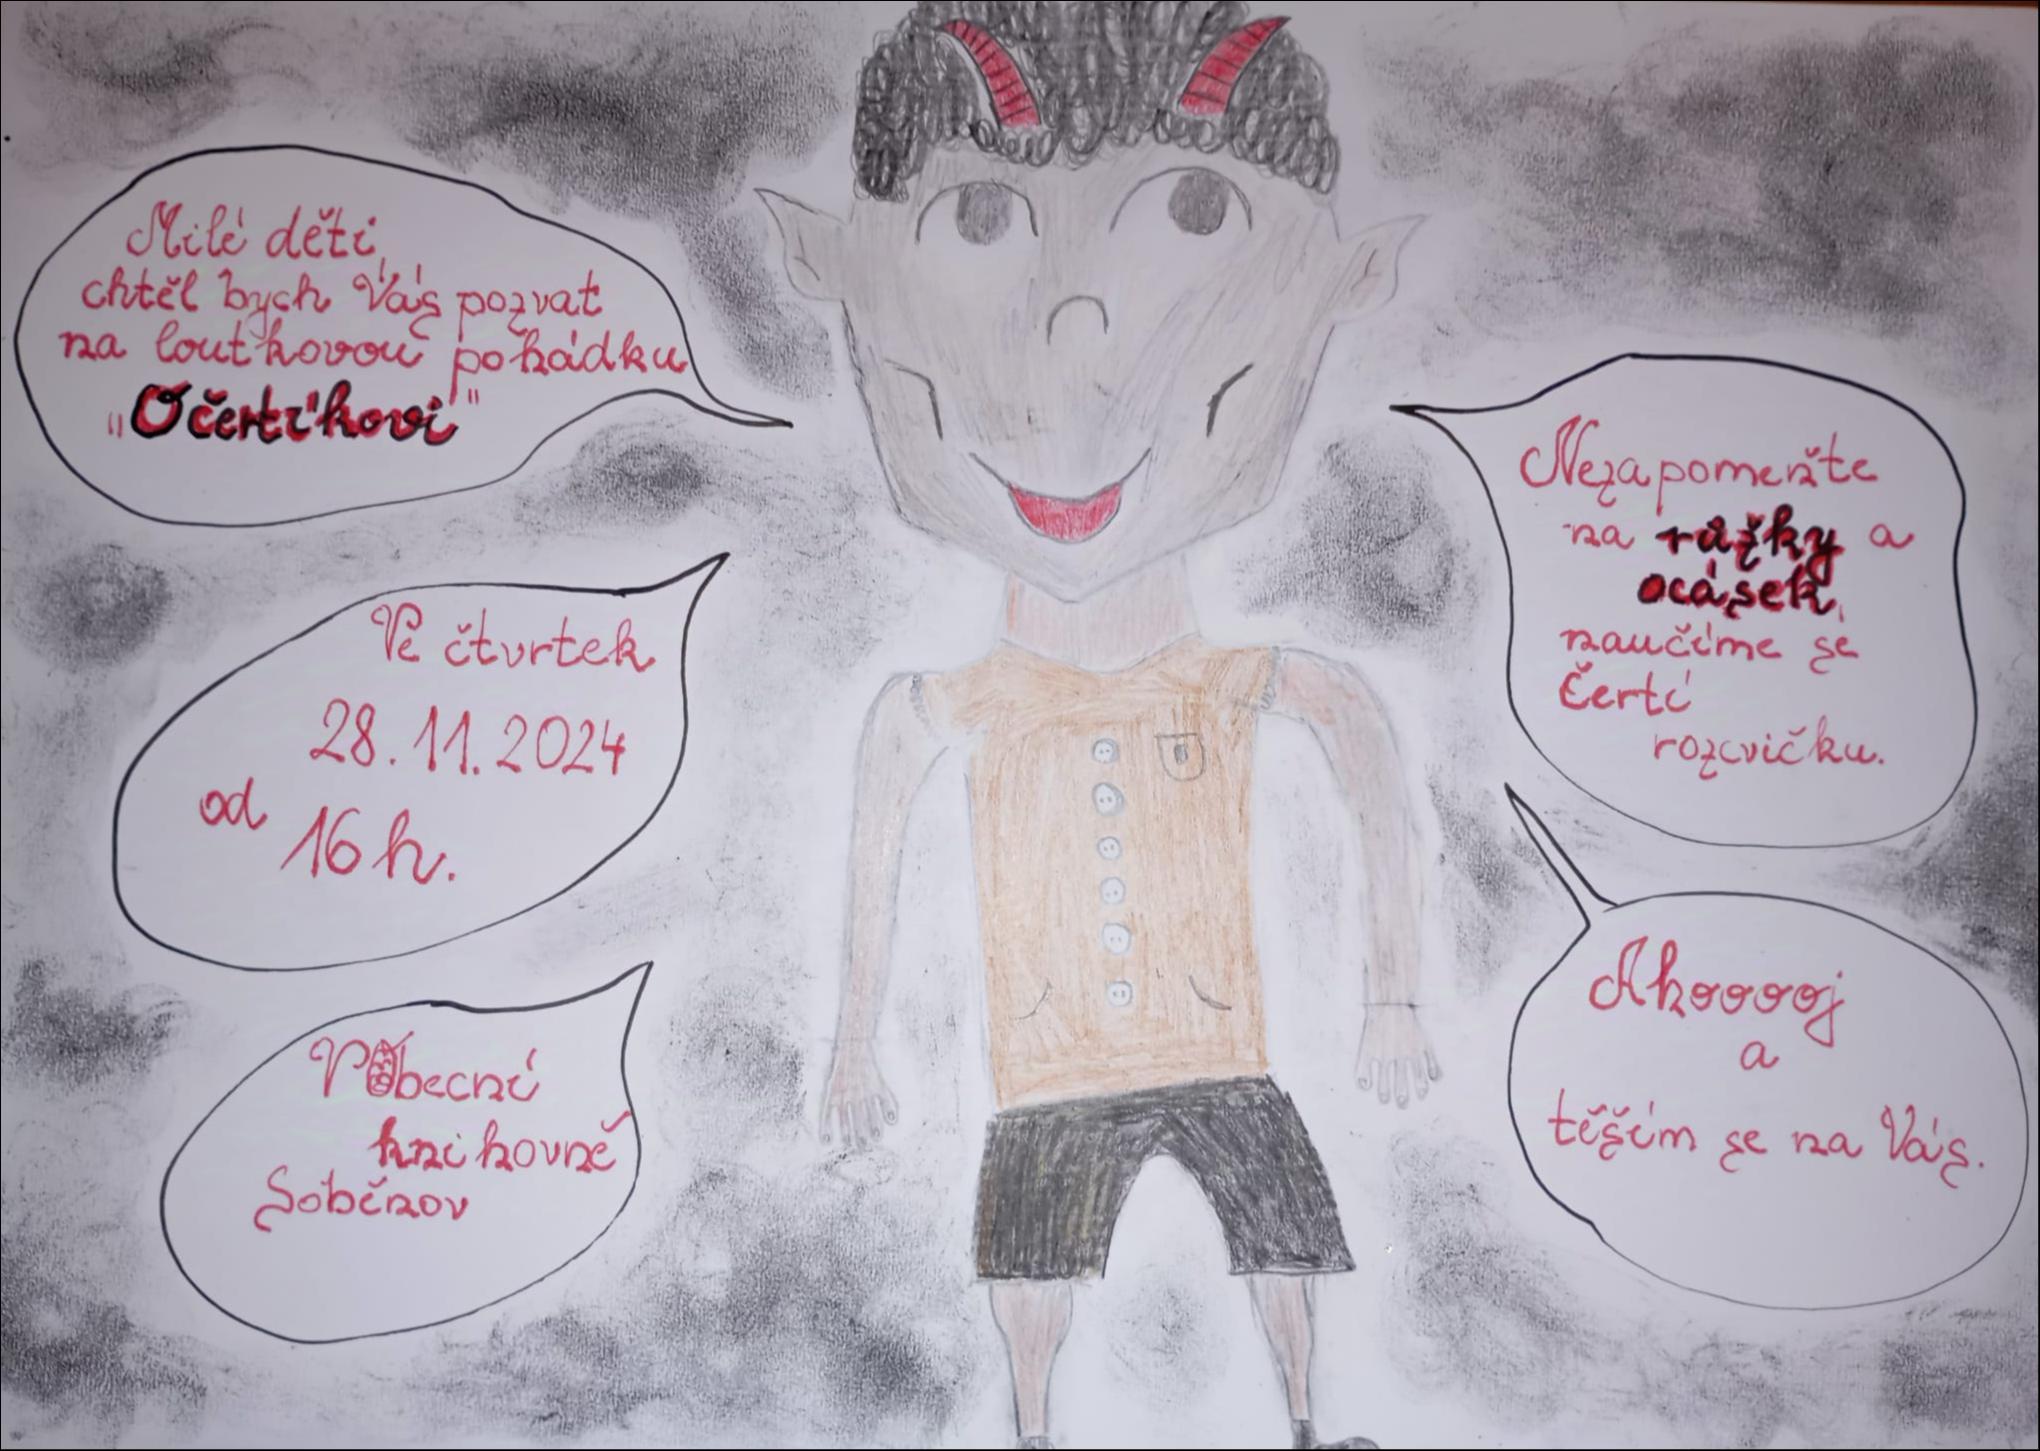 Milé děti,
chtěl bych Vás pozvat
na loutkovou pohádku
"O čertíkovi"
Ve čtvrtek
28.11.2024
od 16 h.
V Obecní
knihovně
Soběnov
Nezapomeňte
na růžky a
ocásek,
naučíme se
čertí
rozcvičku.
Ahooooj
a
těším se na Vás.